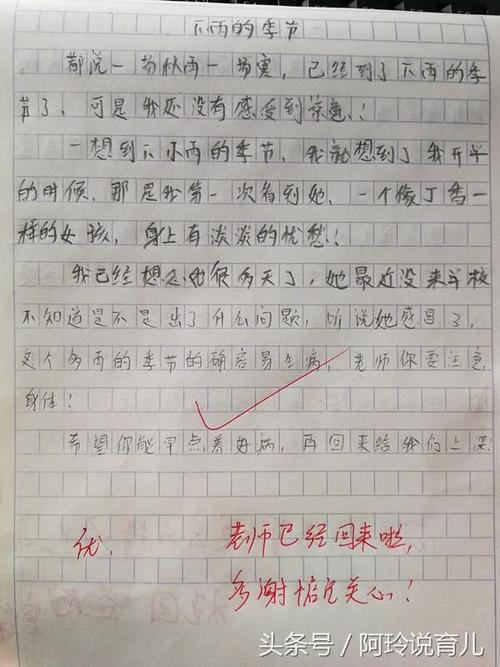 下雨的季节
都说一场秋雨一场寒，已经到了下雨的季
节了，可是我还没有感受到凉意！
一想到下小雨的季节，我就想到了我开学
的时候，那是我第一次看到她，一个像丁香一
样的女孩，身上有淡淡的忧愁！
我已经想念她很多天了，她最近没来学校
不知道是不是出了什么问题，听说她感冒了，
这个多雨的季节的确容易生病，老师你要注意
身体！
希望你能早点养好病，再回来给我们上课
优， 老师已经回来啦，
多谢关心！
头条号／阿玲说育儿